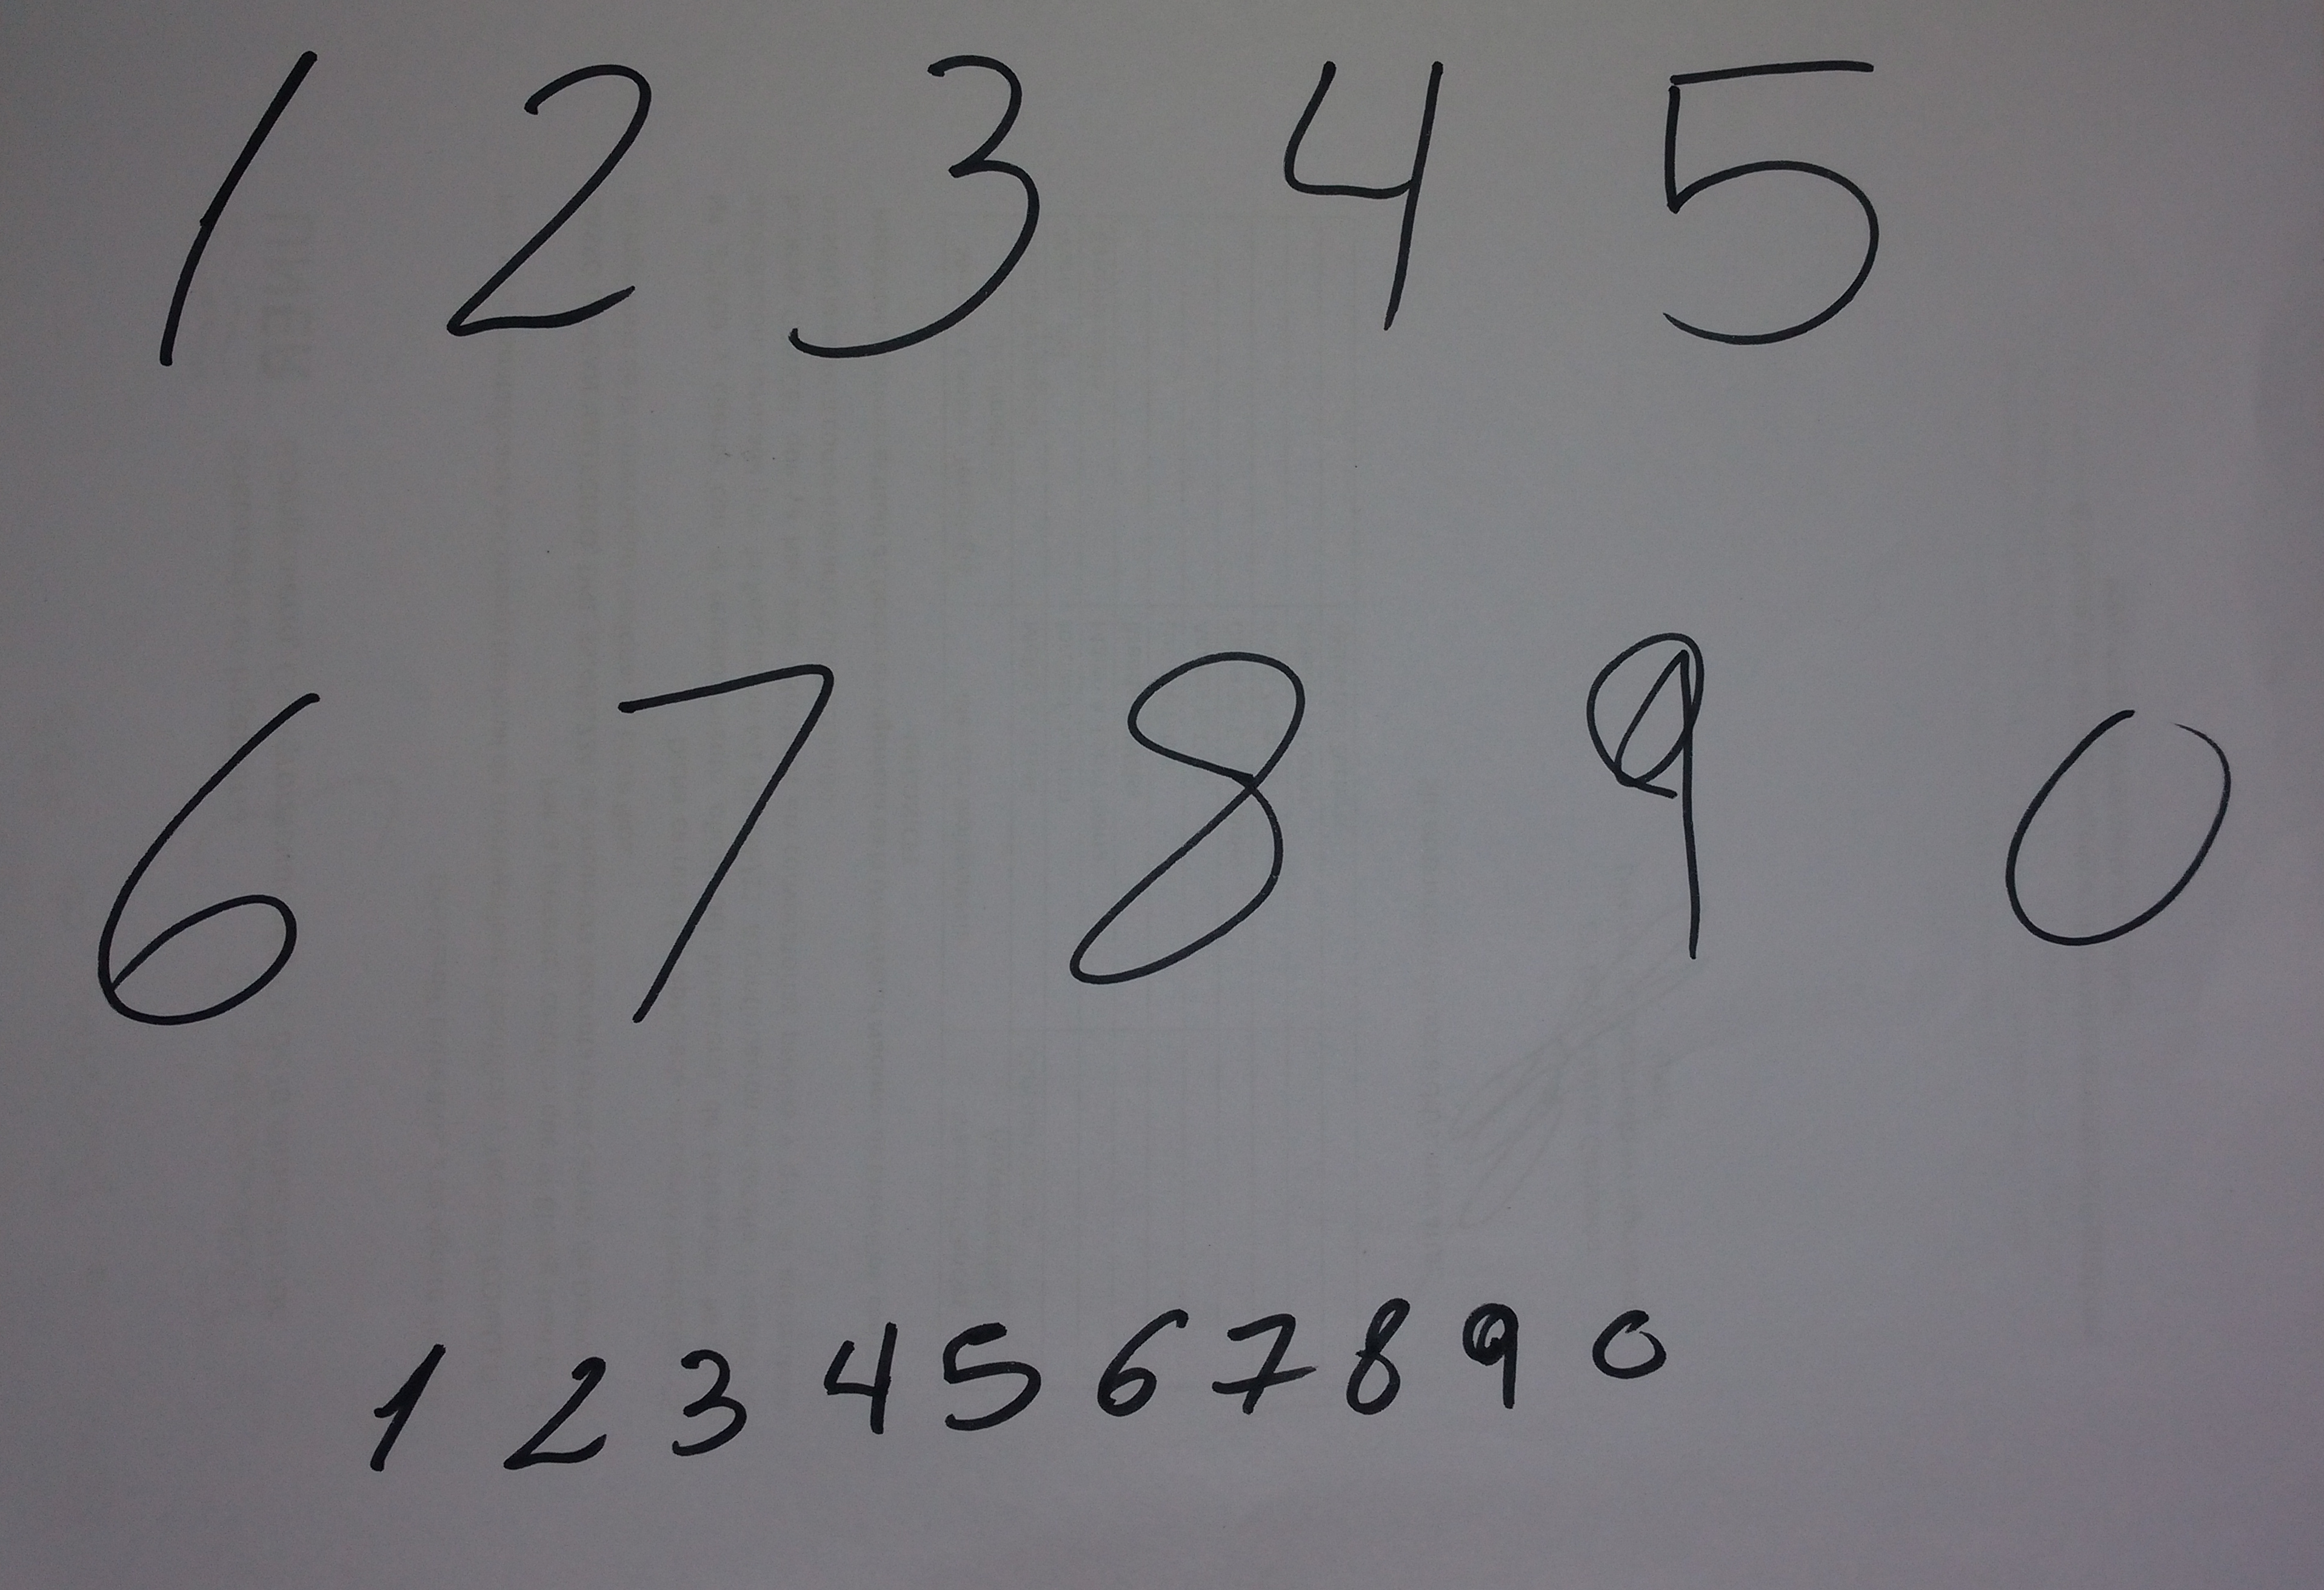 1 2 3 4 5
6 7 8 9 0
1 2 3 4 5 6 7 8 9 0